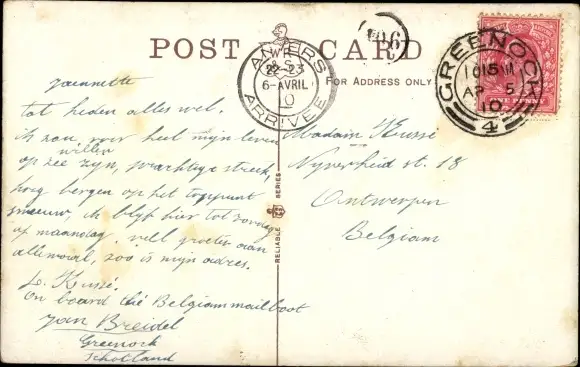 POST CARD
FOR ADDRESS ONLY
ANVERS
22-23
6-AVRIL
10
ARRIVÉE
GREENOCK
1015M
AP 5
10
4
RELIABLE SERIES
Jeannette
tot heden alles wel.
Ik zou voor heel mijn leven
willen
op zee zyn, prachtige streek,
hoog bergen op het toppunt
sneeuw, ik blyf hier tot zondag
of maandag, veel groeten aan
allemaal, zoo is mijn adres.
L. Kussé.
On board the Belgiammailboot
Jan Breidel
Greenock
Schotland
Madam Kussé
st. 18
Antwerpen
Belgiam